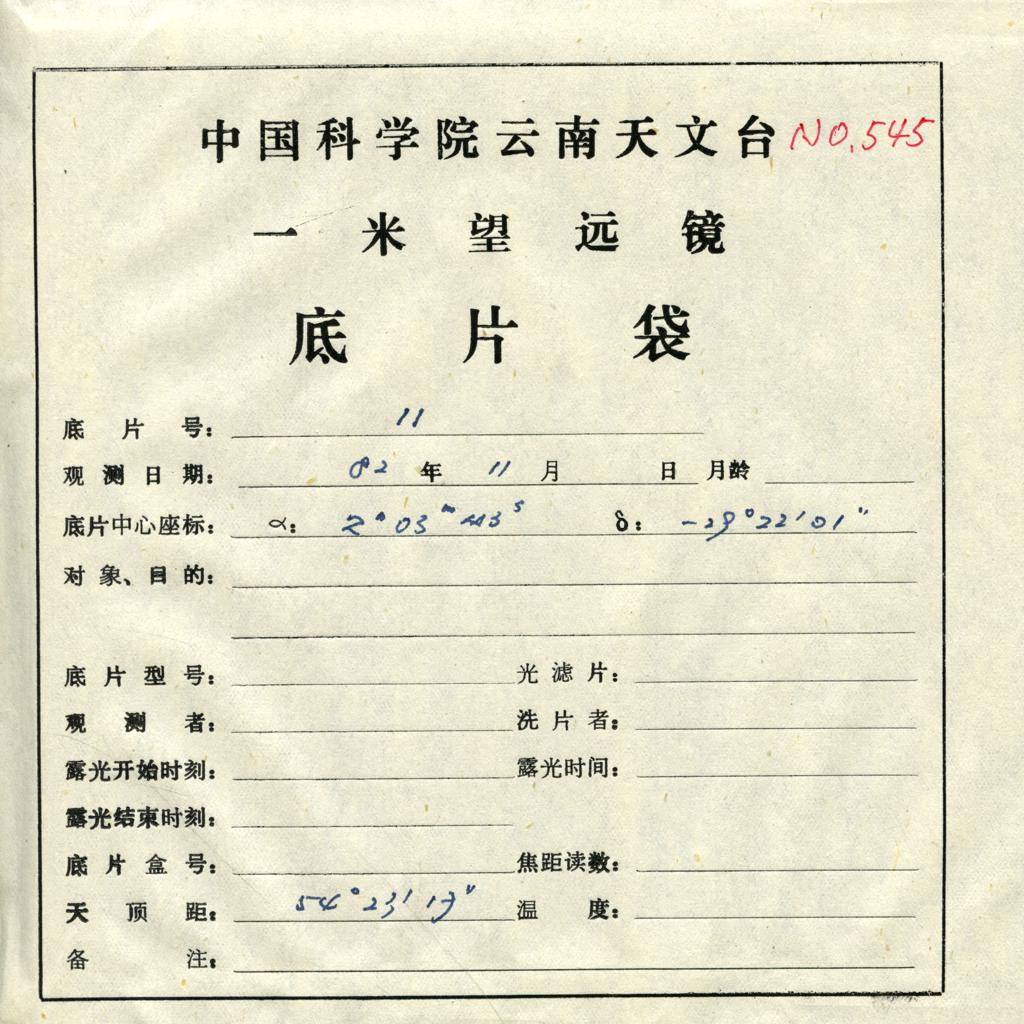 中国科学院云南天文台 NO.545
一米望远镜
底片袋
底片号: 11
观测日期: 82年 11月 日 月龄
底片中心座标: α: 2ʰ03ᵐ43ˢ δ: -29°22′01″
对象、目的:
底片型号: 光滤片:
观测者: 洗片者:
露光开始时刻: 露光时间:
露光结束时刻:
底片盒号: 焦距读数:
天顶距: 54°23′19″ 温度:
备注: